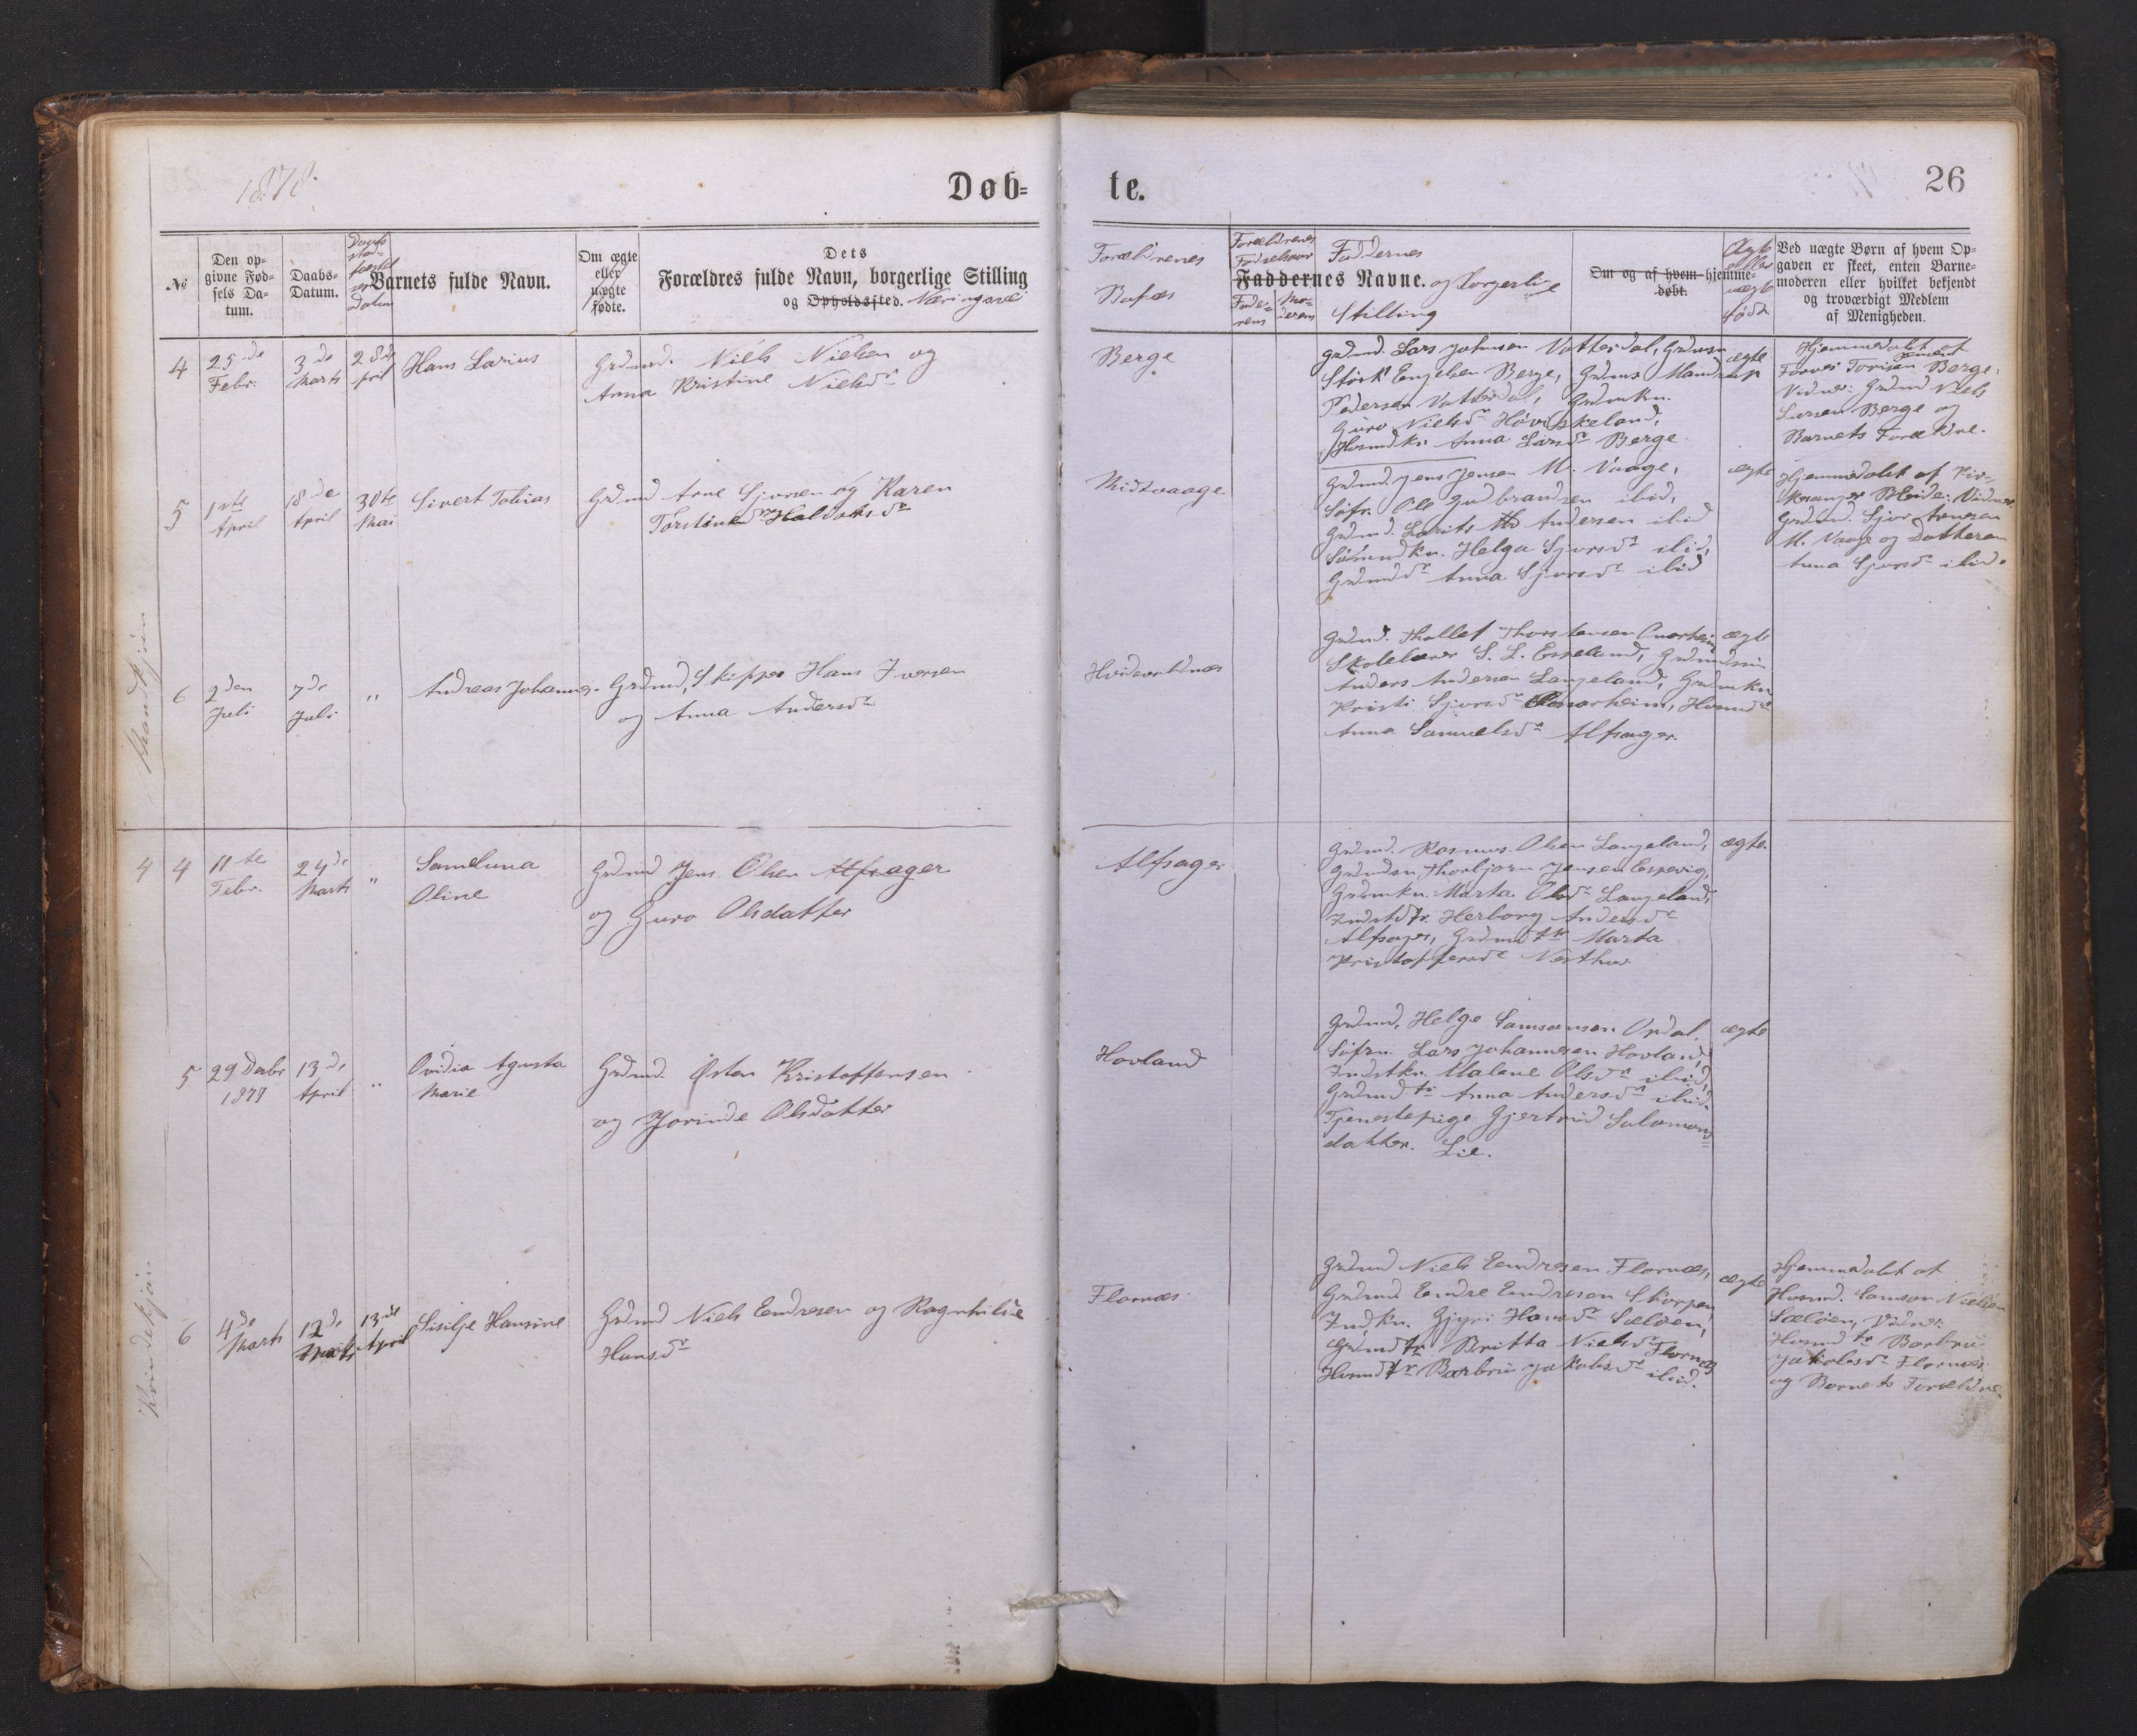 1878.
Døb-
te.
26
№
Den op-
givne Fød-
sels Da-
tum.
Daabs-
Datum.
Daabs
stad-
fæstel
ses
Datum
Barnets fulde Navn.
Om ægte
eller
uægte
fødte.
Dets
Forældres fulde Navn, borgerlige Stilling
og Opholdssted. Næringsvei
Forældrenes
Bofæs
Forældrenes
Fødselsaar
Fade-
rens
Mo-
derens
Faddernes
Faddernes Navne. og borgerlige
Stilling
Om og af hvem hjemme-
døbt.
Ægte
eller
uægte
født
Ved uægte Børn af hvem Op-
gaven er skeet, enten Barne-
moderen eller hvilket bekjendt
og troværdigt Medlem
af Menigheden.
Mandkjøn
4
25de
Febr.
3de
Marts
28de
April
Hans Larius
Grdmd. Niels Nielsen og
Anna Kristine Nielsdr
Berge
Grdmd. Lars Johnsen Vatterdal, Grdmsn
Størk Engelsen Berge, Grdms Mandrup
Pedersen Vatterdal, Grdmkn.
Guro Nielsdr Høviskeland,
Husmdkn Anna Larsdr Berge.
ægte
Hjemmedøbt af
Berge,
Vidner: Grdmd Niels
Larsen Berge og
Barnets Forældre.
5
1ste
April
18de
April
30te
Mai
Sivert Tobias
Grdmd Arne Sjursen og Karen
Torstine Haldorsdr
Midtvaage
Grdmd. Jens Jensen M. Vaage,
Søfr. Ole Gudbrandsen ibid,
Grdmd. Laurits Andersen ibid
Helga Sjursdr ibid,
Grdmdr Anna Sjursdr ibid
ægte
Hjemmedøbt af Kir-
kesanger Meide. Vidner
Grdmd. Sjur Arnesen
M. Vaage og Datteren
Anna Sjursdr ibid.
6
2den
Juli
7de
Juli
"
Andreas Johannes.
Grdmd, Skipper Hans Iversen
og Anna Andersdr
Hvidevoldnæs
Grdmd. Thollef Thorstensen Onarheim
Skolelærer S. L. Espeland, Grdmdssøn
Anders Andersen Langeland, Grdmkn
Kristi Sjursdr Onarheim, Husmdr
Anna Samuelsdr Alfsager.
ægte
4
4
11te
Febr.
24de
Marts
"
Sameluna
Oline
Grdmd Jens Olsen Alfsager
og Guro Olsdatter
Alfsager
Grdmd. Rasmus Olsen Langeland,
Grdmdsn, Thorbjørn Jensen Espevig,
Grdmkn. Marta Olsdr Langeland,
Indstdtr. Herborg Andersdr
Alfsager, Grdmdtr Marta
Kristoffersdr Nesthus
ægte.
5
29 Decbr
1877
13de
April
"
Ovidia Agusta
Marie
Grdmd. Østen Kristoffersen
og Jorinde Olsdatter
Hovland
Grdmd. Helge Samsonsen Opdal,
Søfrm. Lars Johannesen Hovland,
Indstkn. Malene Olsdr ibid,
Grdmdtr Anna Andersdr ibid.
Tjenestepige Gjertrud Salamons
datter. Lie.
ægte
Kvindekjøn
6
4de
Marts
12de
Marts
13de
April
Sisilje Hansine
Grdmd Niels Endresen og Ragnhilde
Hansdr
Flornæs
Grdmd Niels Endresen Flornæs,
Grdmd Endre Endresen Skorpen,
Indkn. Gjyri Hansdr Sæløen,
Grdmdtr. Britta Nielsdr Flornæs
Husmdtr Barbru Jakobsdr ibid.
ægte
Hjemmedøbt af
Husmd. Samson Nielsen
Sæløen, Vidner:
Husmdtr Barbru
Jakobsdr Flornæs
og Barnets Forældre.